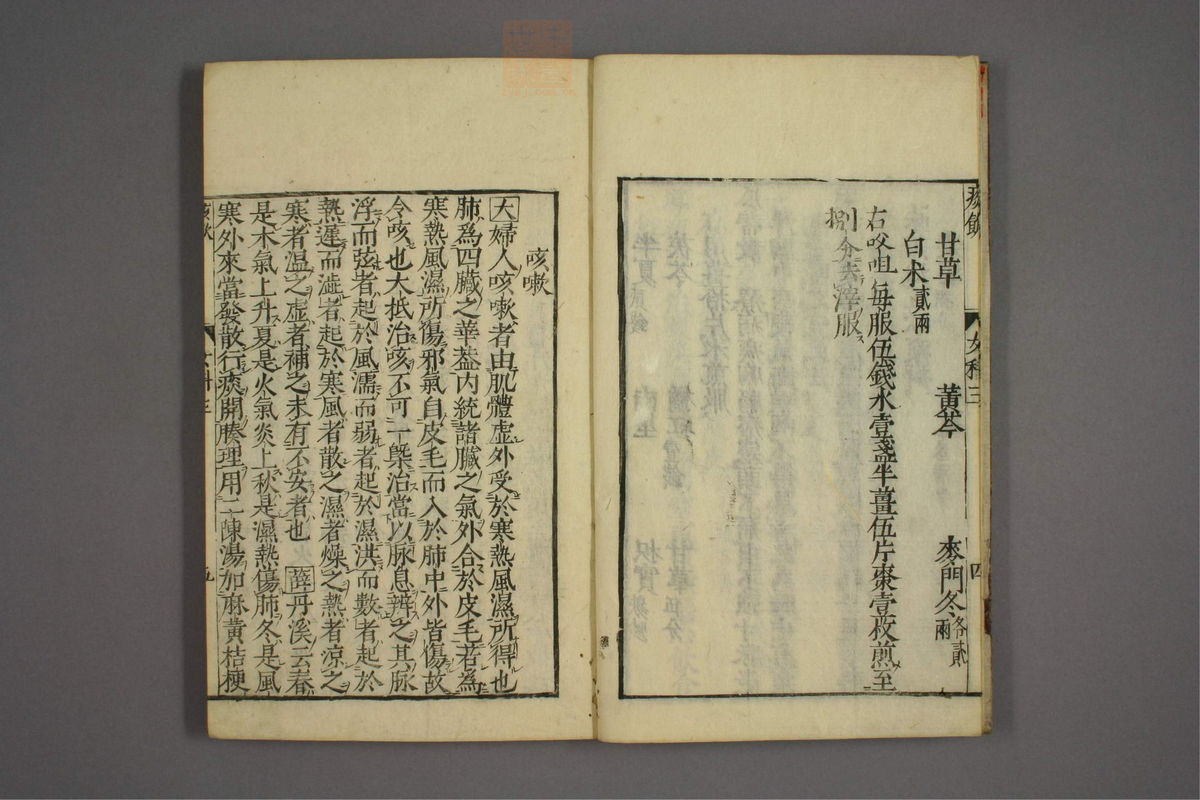 甘草 黃芩 麥門冬各貳兩
白术貳兩
右㕮咀每服伍錢水壹盞半薑伍片棗壹枚煎至
捌分去滓服
女科三
四
咳嗽
大婦人咳嗽者由肌體虛外受於寒熱風濕所得也
肺爲四臟之華葢内統諸臟之氣外合於皮毛若為
寒熱風濕所傷邪氣自皮毛而入於肺中外皆傷故
令咳也大抵治咳不可一槩治當以脉息辨之其脉
浮而弦者起於風濡而弱者起於濕洪而數者起於
熱遲而澁者起於寒風者散之濕者燥之熱者凉之
寒者温之虛者補之未有不安者也 薛丹溪云春
是木氣上升夏是火氣炎上秋是濕熱傷肺冬是風
寒外來當發散行痰開腠理用二陳湯加麻黃桔梗